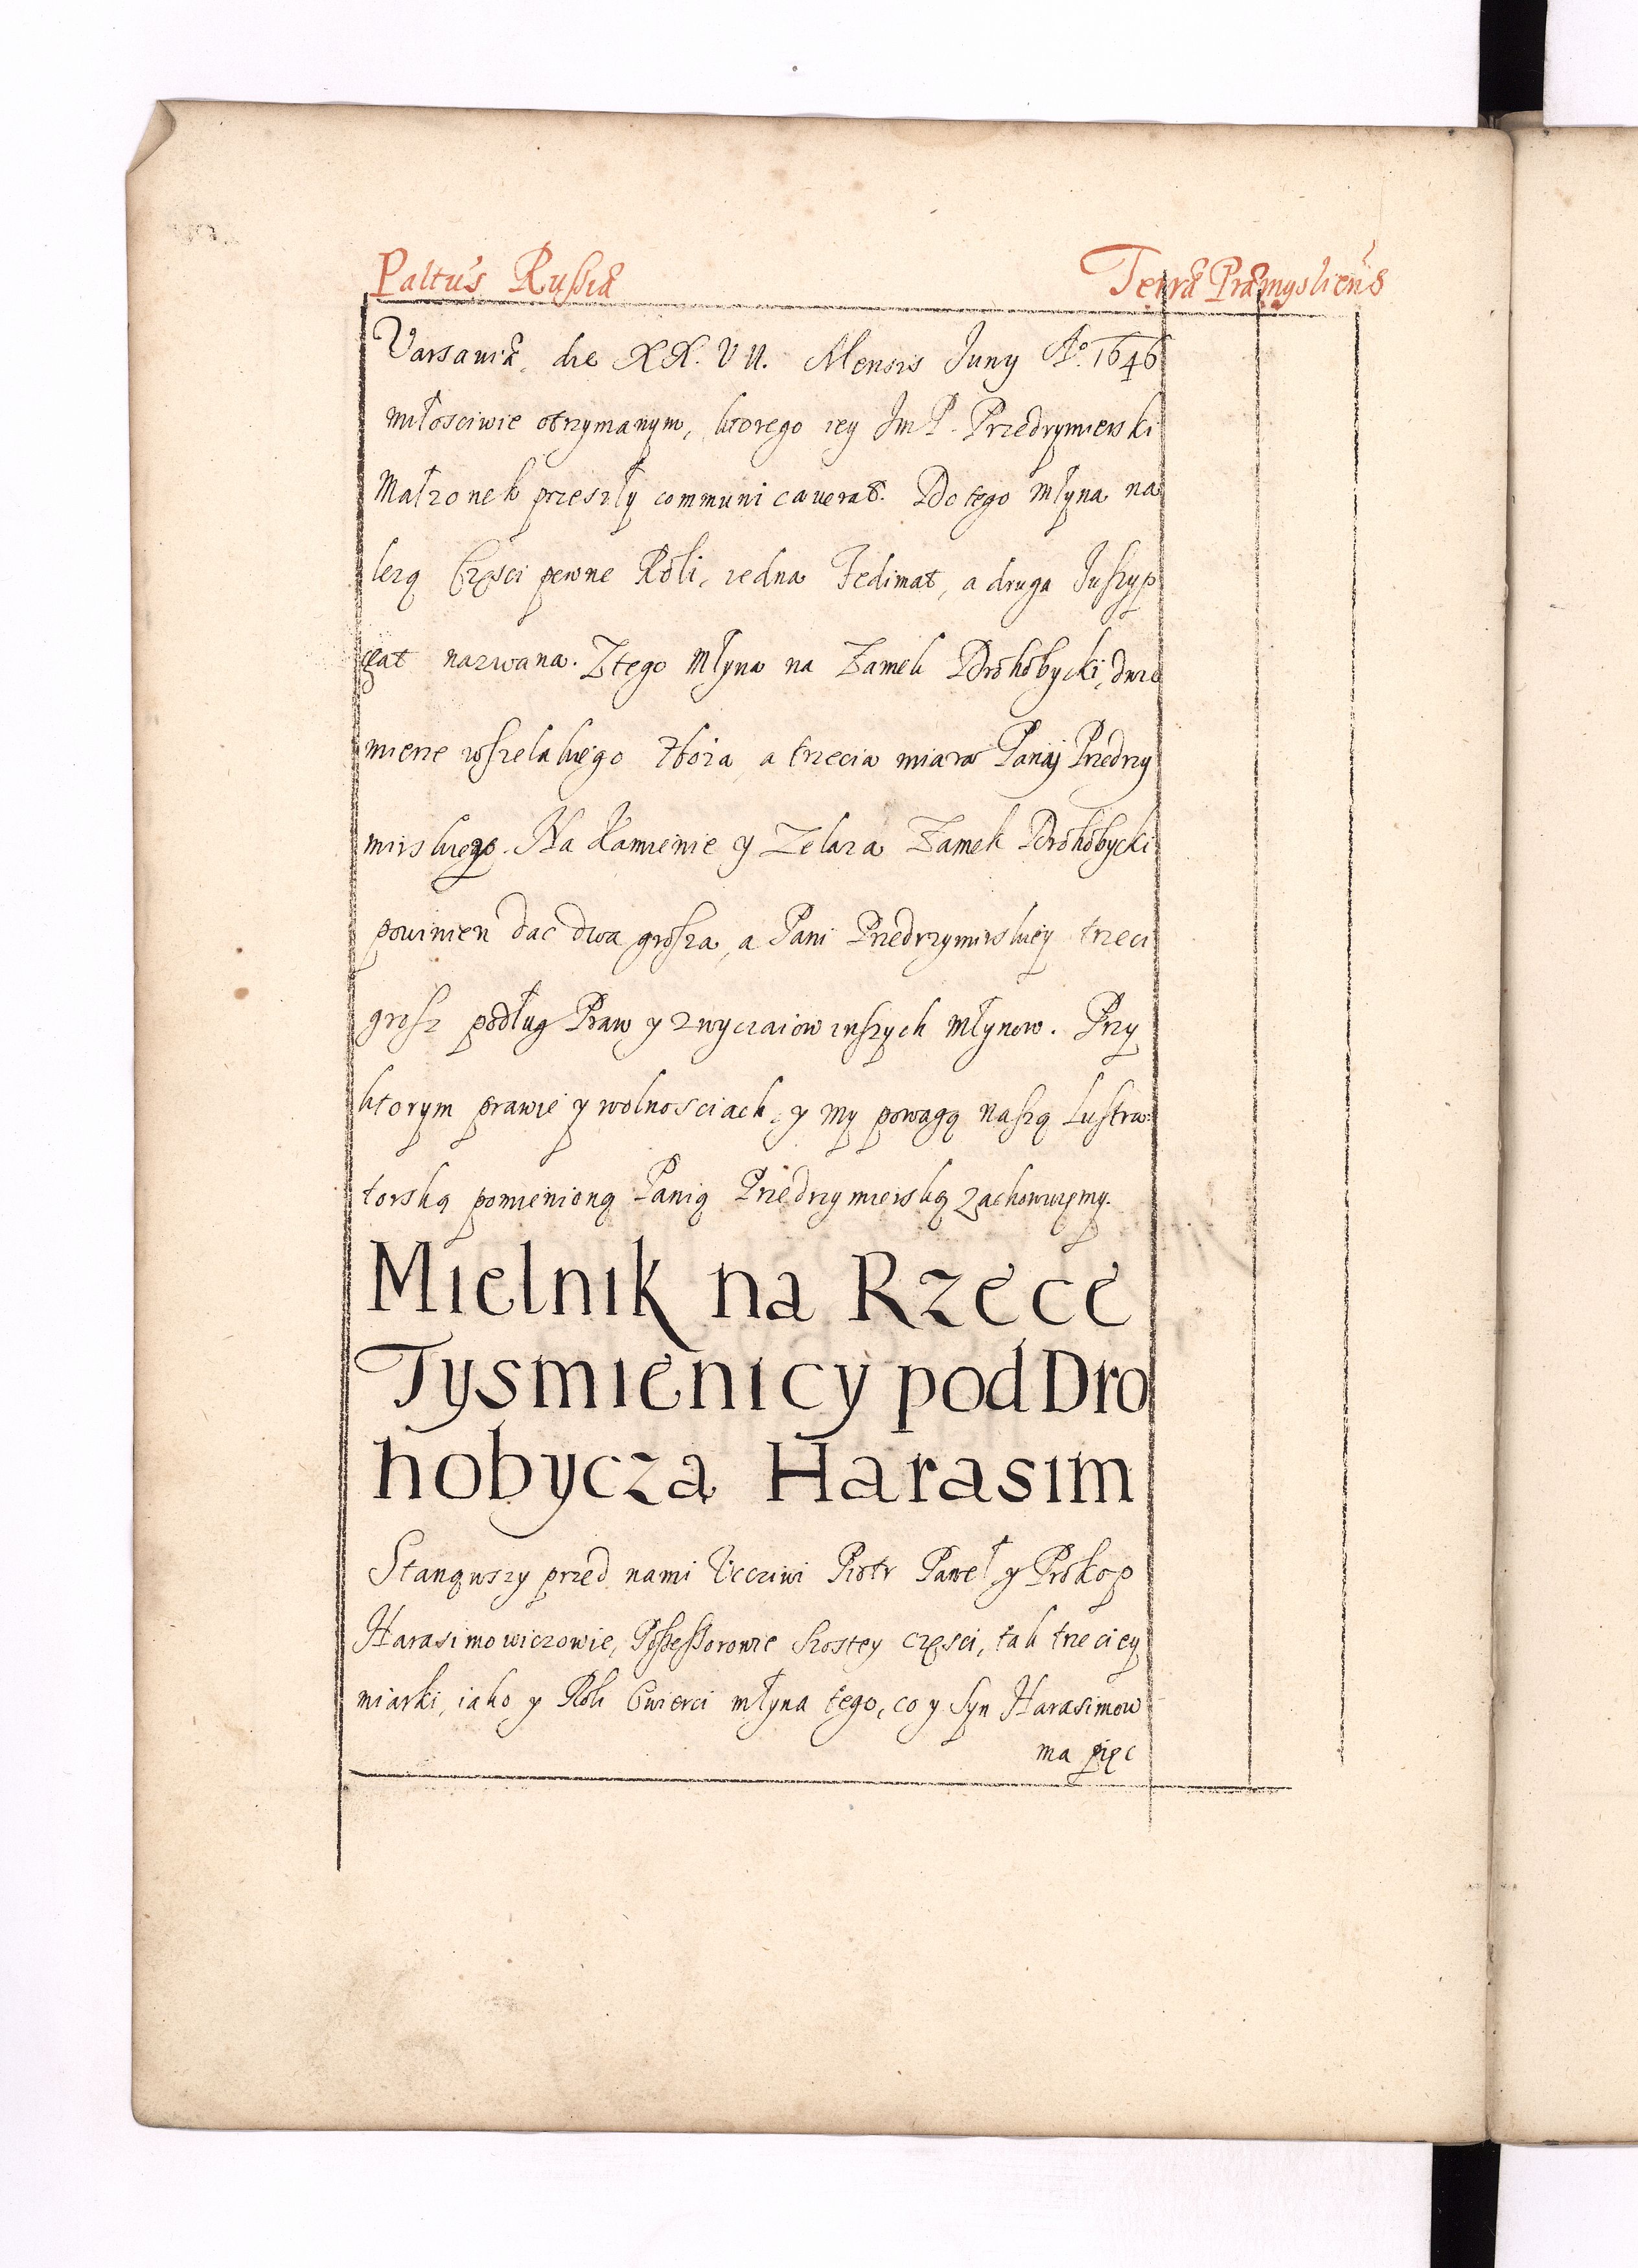 Paltus Russiæ Terræ Præmysliens
Varsaviæ, die XX. VII. Mensis Juny Ao. 1646
miłosciwie otrzymanym, ktorego iey Jm P. Przedrymierski
Małzonek przeszły communicaverat. Do tego Młyna na
lezą Częsci pewne Roli, iedna Fedimat, a druga Juszyp
czat nazwana. Z tego Młyna na Zamek Drohobycki, dwie
mierze wszelakiego Zboza, a trzecia miara Paniey Przedrzy
mirskiego. Na Kamienie y Zelaza Zamek Drohobycki
powinien dac dwa grosza, a Pani Przedrzymirskiey trzeci
grosz podług Praw y zwyczaiow inszych Młynow. Przy
ktorym prawie y wolnosciach, y my powagą naszą Lustra
torską pomienioną Panią Przedrzymierską zachowuięmy.
Mielnik na Rzece
Tysmienicy pod Dro
hobycza Harasim
Stanąwszy przed nami Uczciwi Piotr Paweł y Prokop
Harasimowiczowie, Possessorowie szostey częsci, tak trzeciey
miarki, iako y Roli Cwierci młyna tego, co y Syn Harasimow
ma pięc